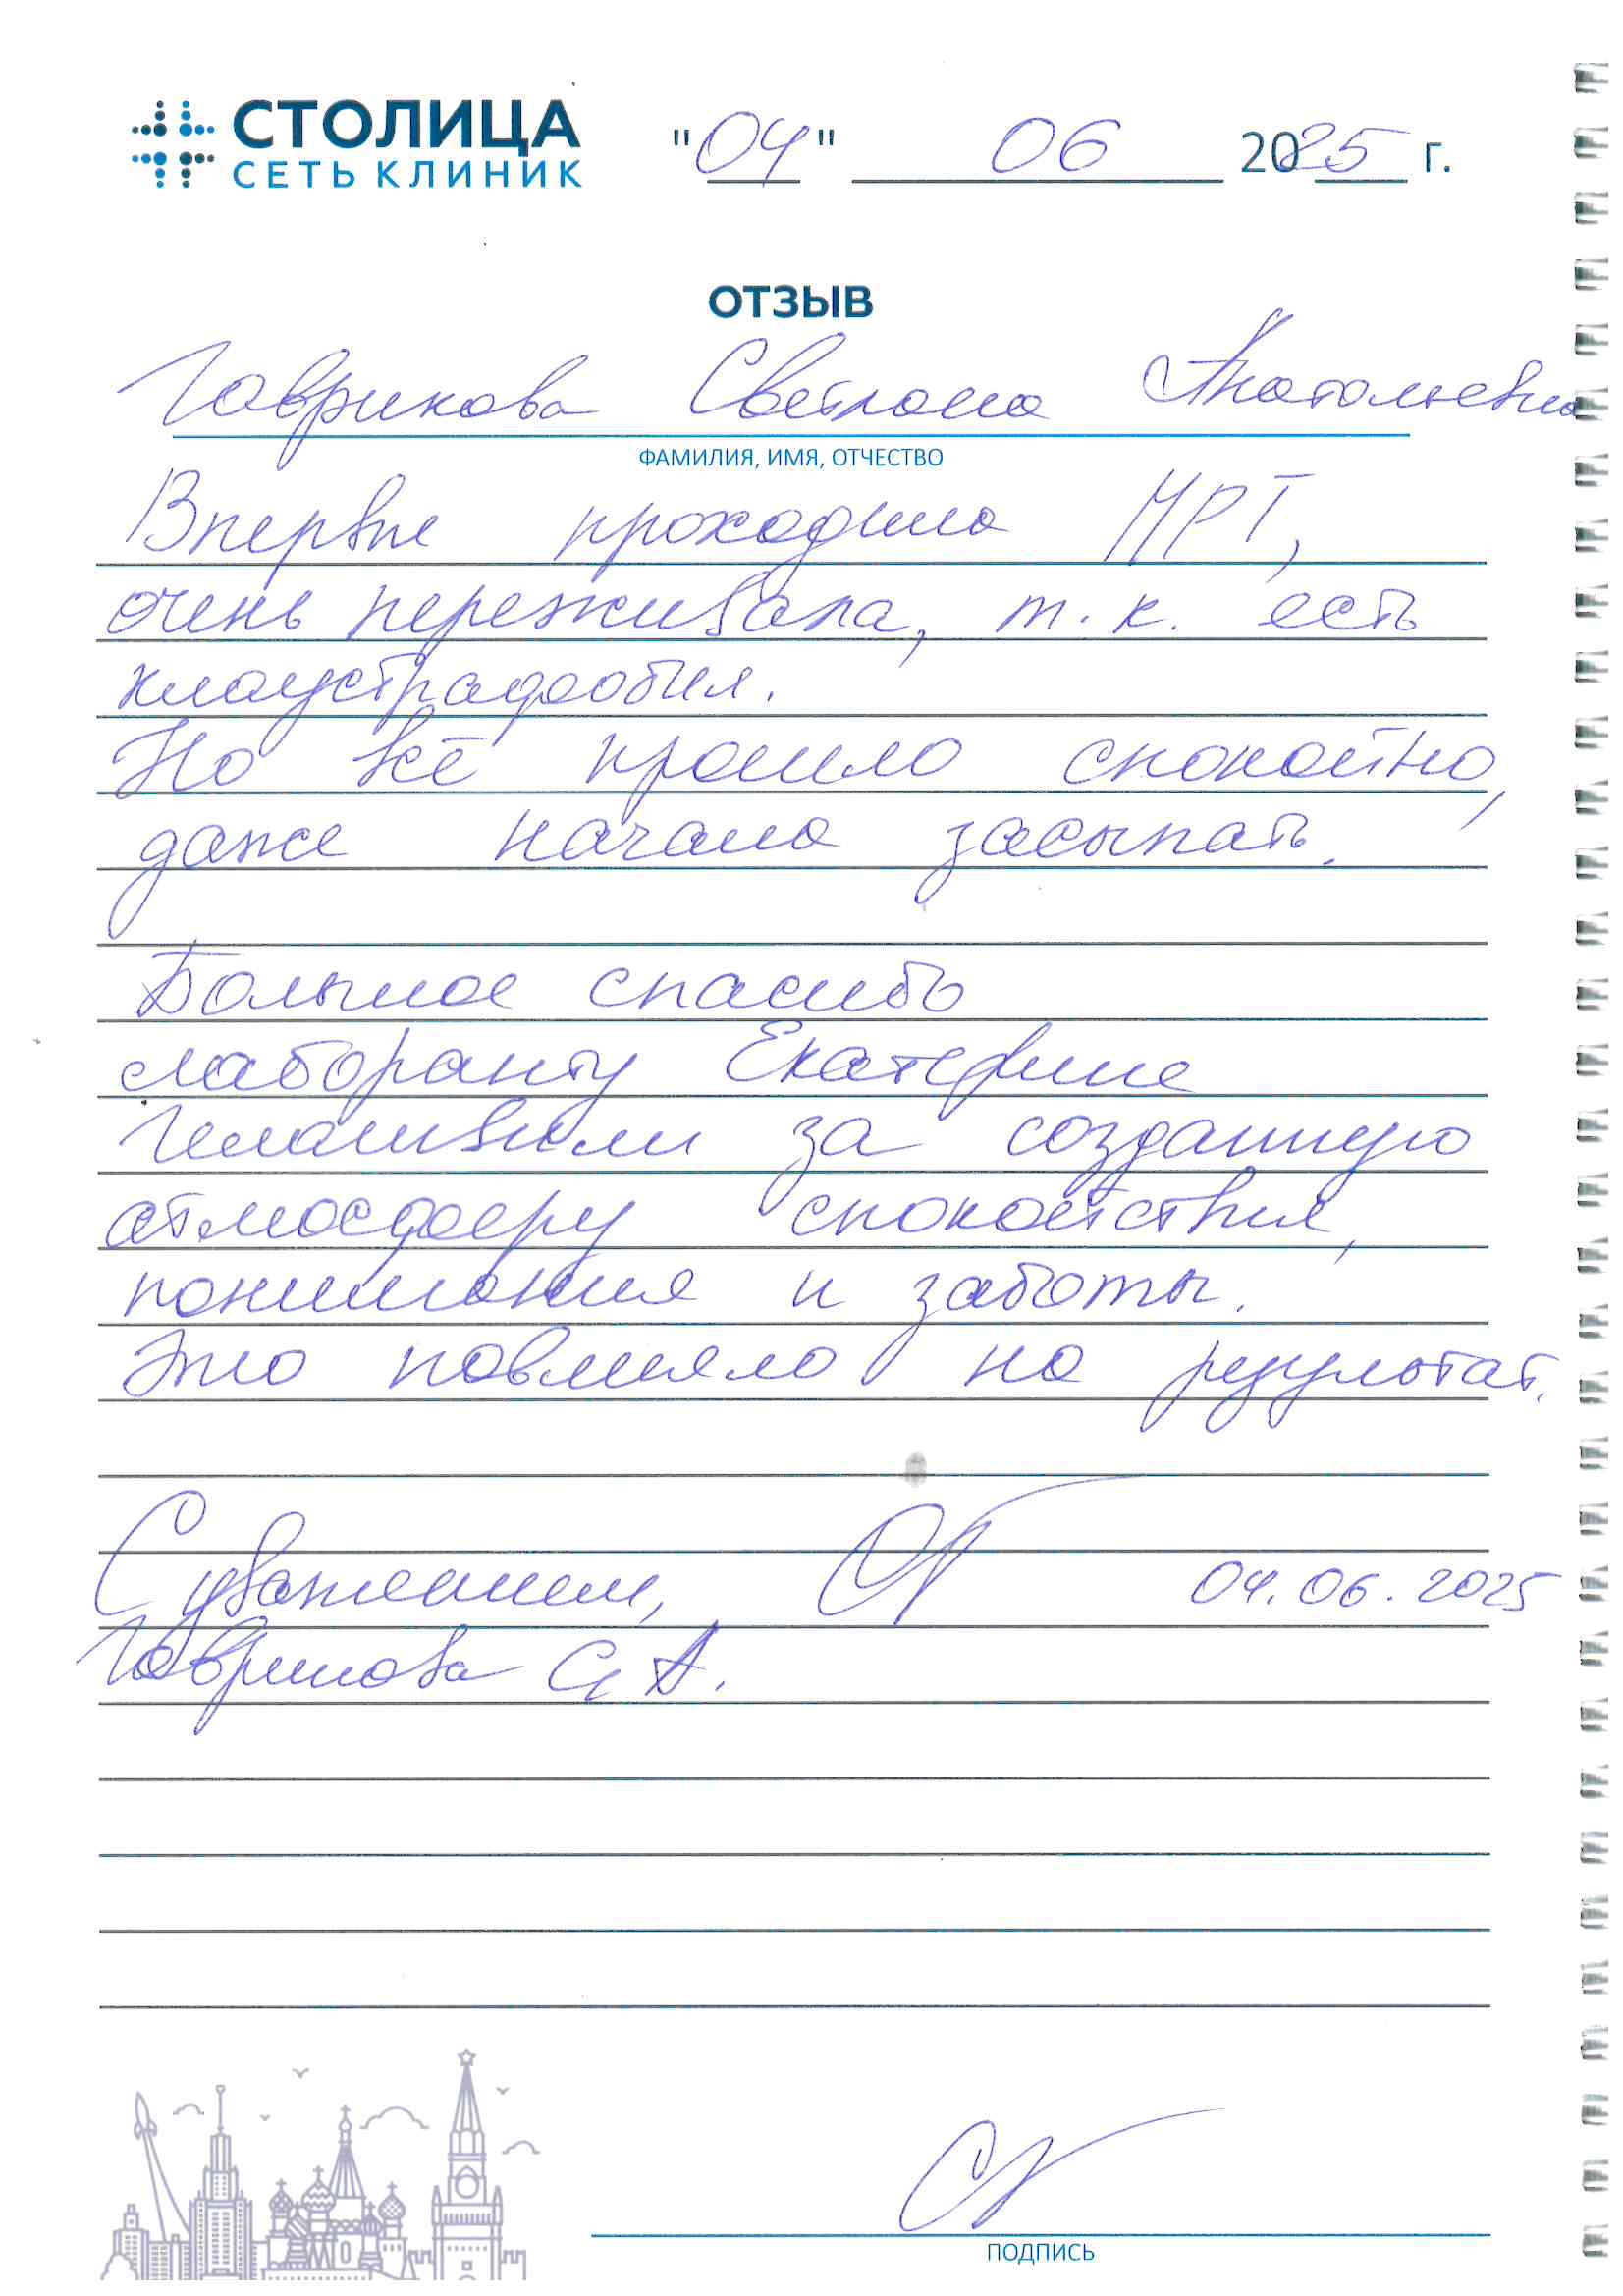 СТОЛИЦА
СЕТЬ КЛИНИК
"04" 06 2025 г.
ОТЗЫВ
Гаврикова Светлана Анатольевна
ФАМИЛИЯ, ИМЯ, ОТЧЕСТВО
Впервые проходила МРТ,
очень переживала, т.к. есть
клаустрафобия.
Но всё прошло спокойно,
даже начала засыпать.
Большое спасибо
лаборанту Екатерине
за созданную
атмосферу спокойствия,
понимания и заботы.
Это повлияло на результат.
С уважением, 04.06.2025
Гаврикова С.А.
ПОДПИСЬ